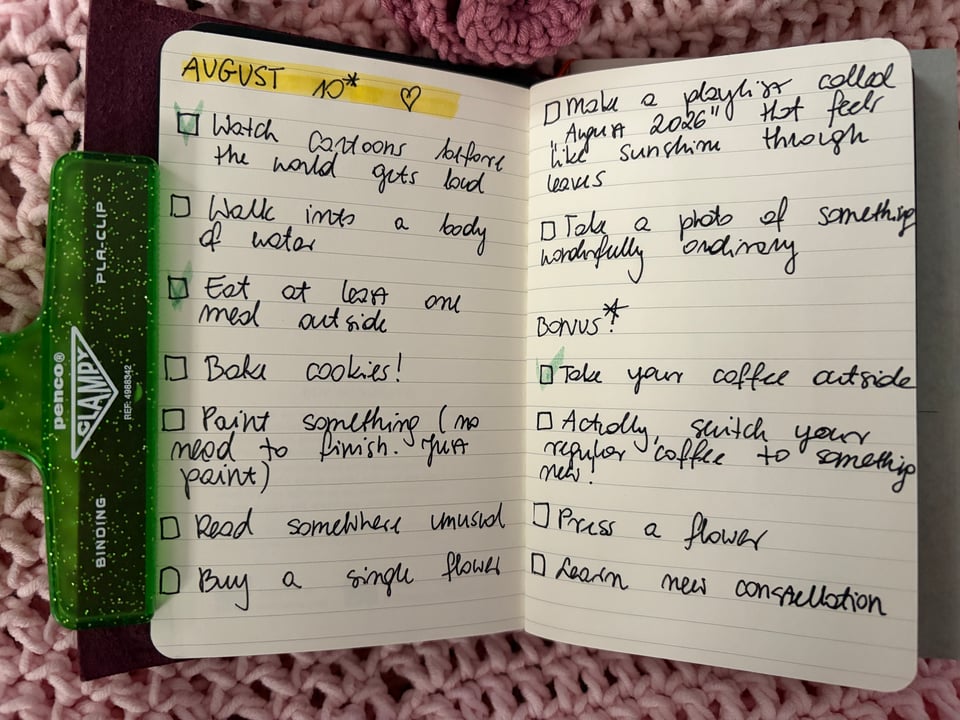 AUGUST 10* ♡
☐ Watch Cartoons before
the world gets loud
☐ Walk into a body
of water
☐ Eat at least one
meal outside
☐ Bake cookies!
☐ Paint something (no
need to finish. Just
paint)
☐ Read somewhere unusual
☐ Buy a single flower
☐ Make a playlist called
"August 2026" that feels
like sunshine through
leaves
☐ Take a photo of something
wonderfully ordinary
BONUS*!
☐ Take your coffee outside
☐ Actually, switch your
regular coffee to something
new!
☐ Press a flower
☐ Learn new constellation
PLA-CLIP
penco®
CLAMPY
REF: 4988342
BINDING